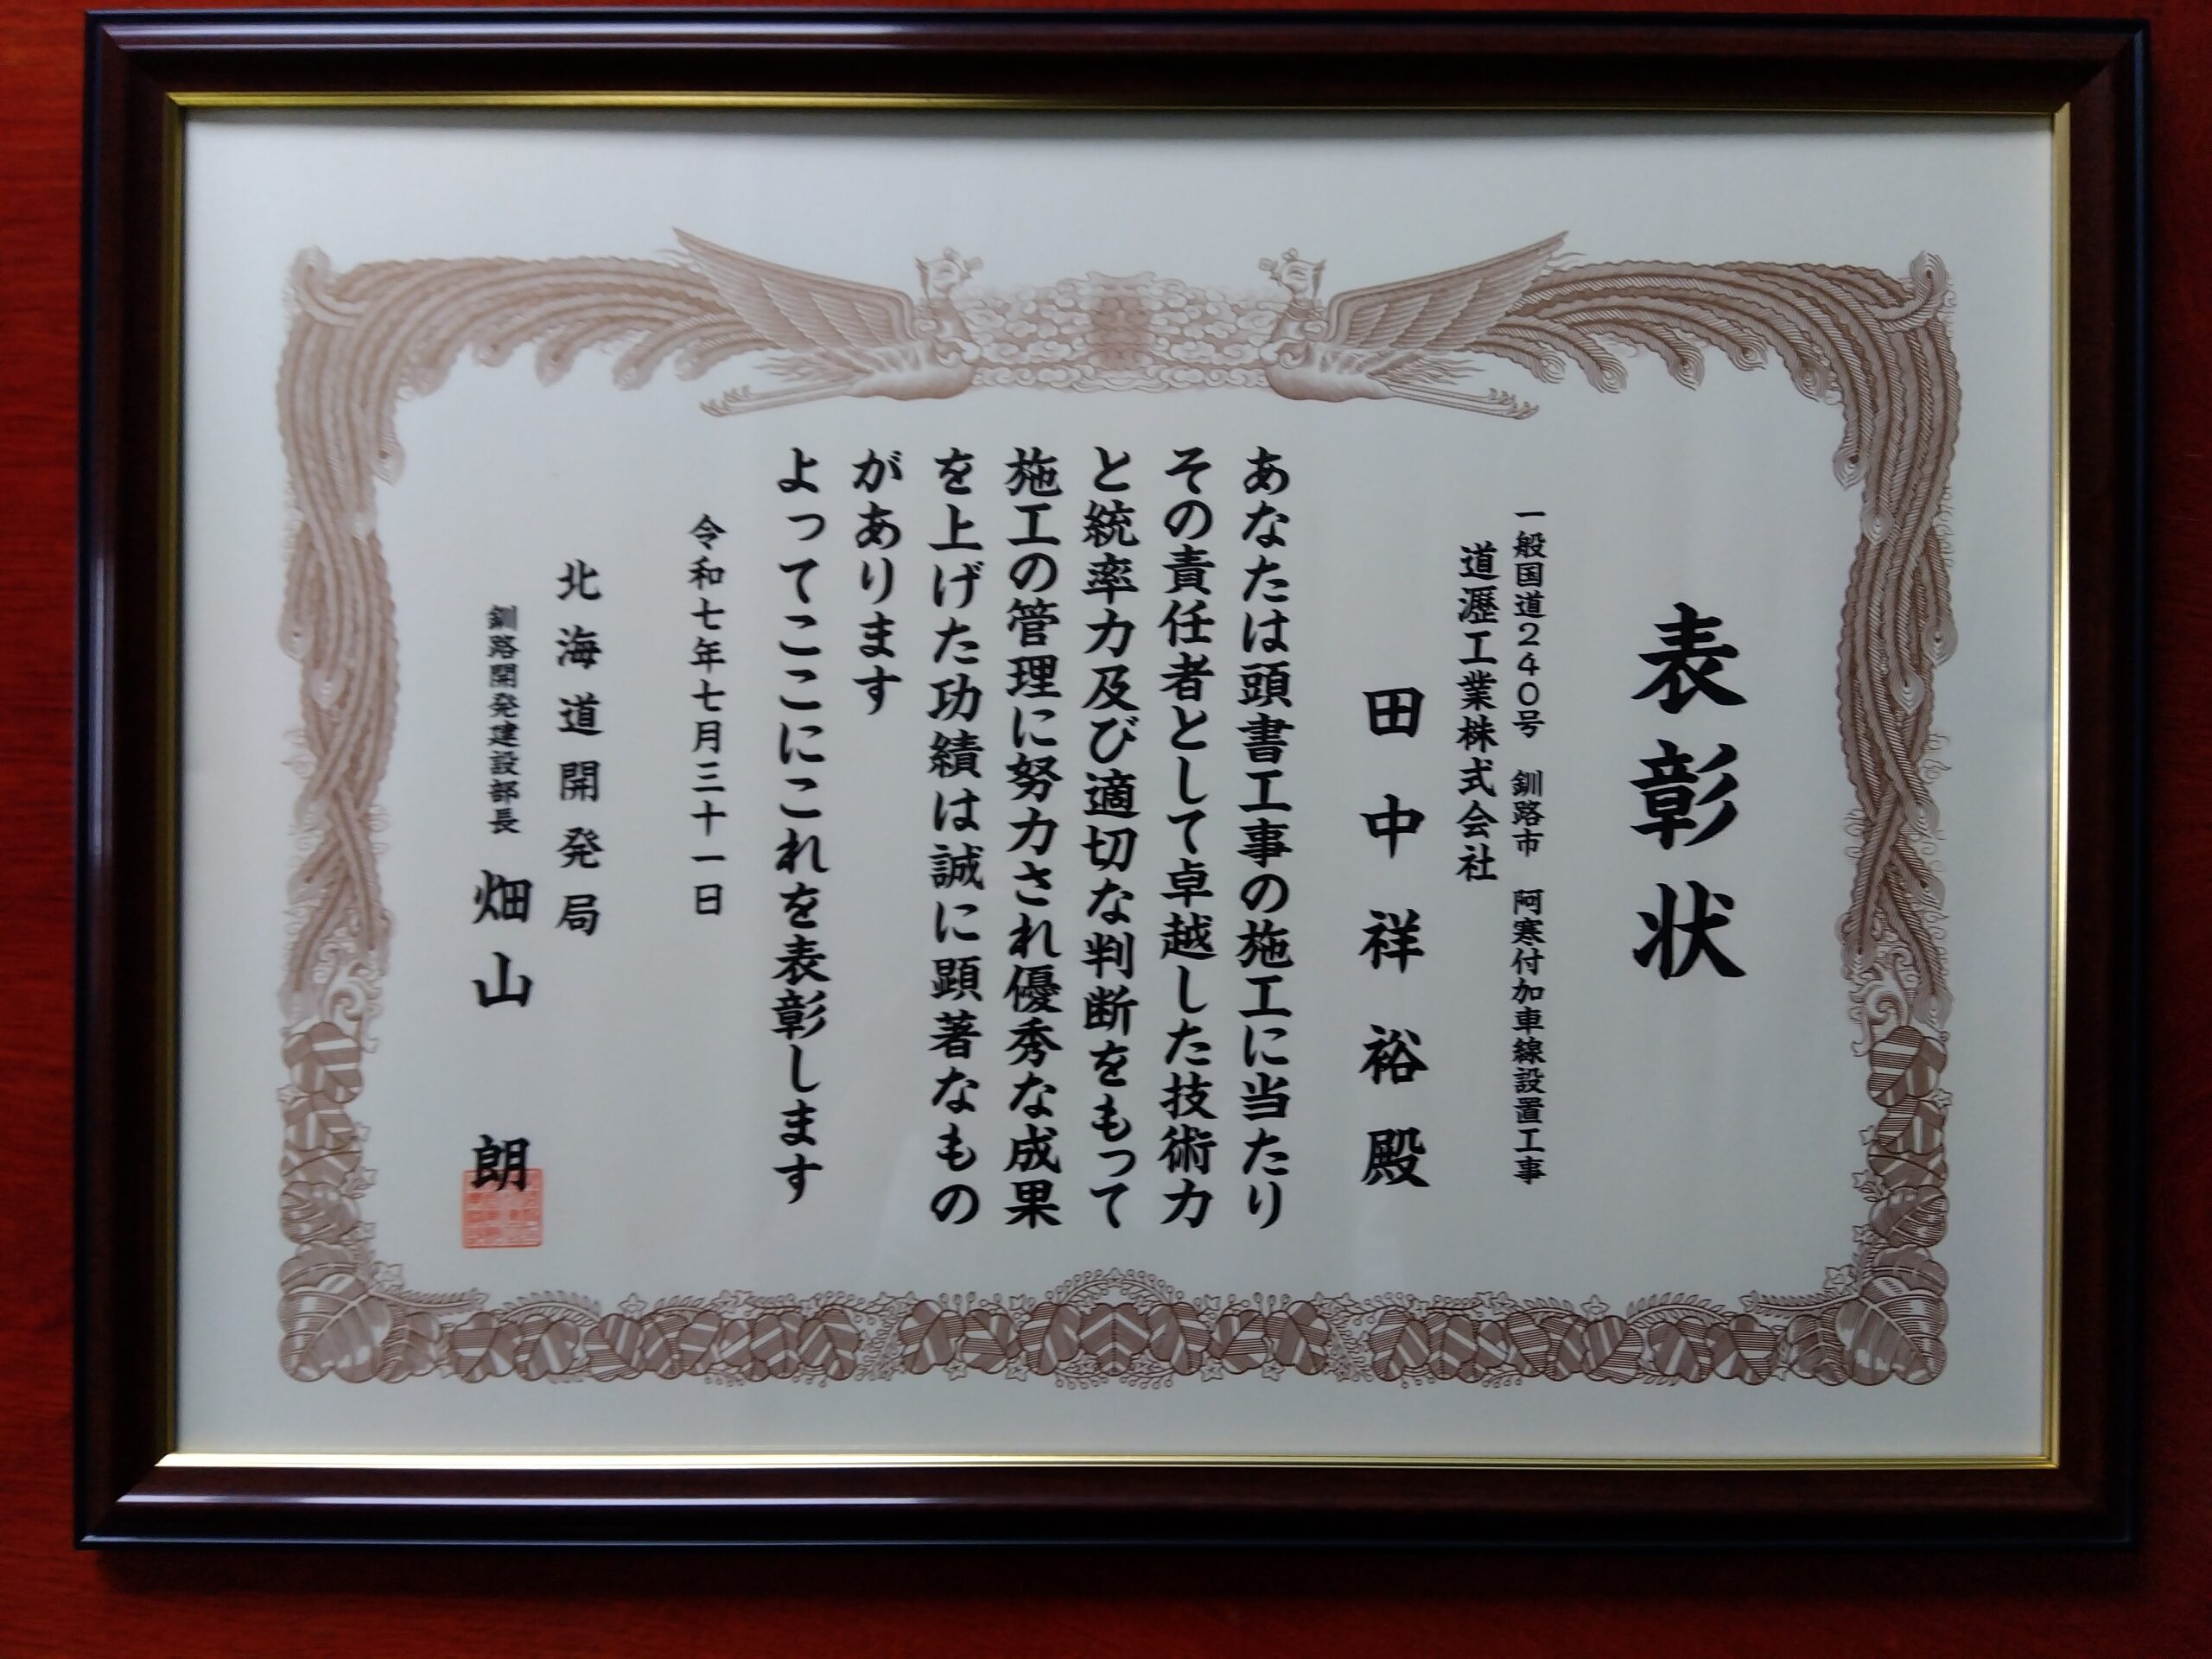 表彰状
一般国道２４０号　釧路市　阿寒付加車線設置工事
道瀝工業株式会社
田中祥裕殿
あなたは頭書工事の施工に当たり
その責任者として卓越した技術力
と統率力及び適切な判断をもって
施工の管理に努力され優秀な成果
を上げた功績は誠に顕著なもの
があります
よってここにこれを表彰します
令和七年七月三十一日
北海道開発局
釧路開発建設部長　畑山　朗